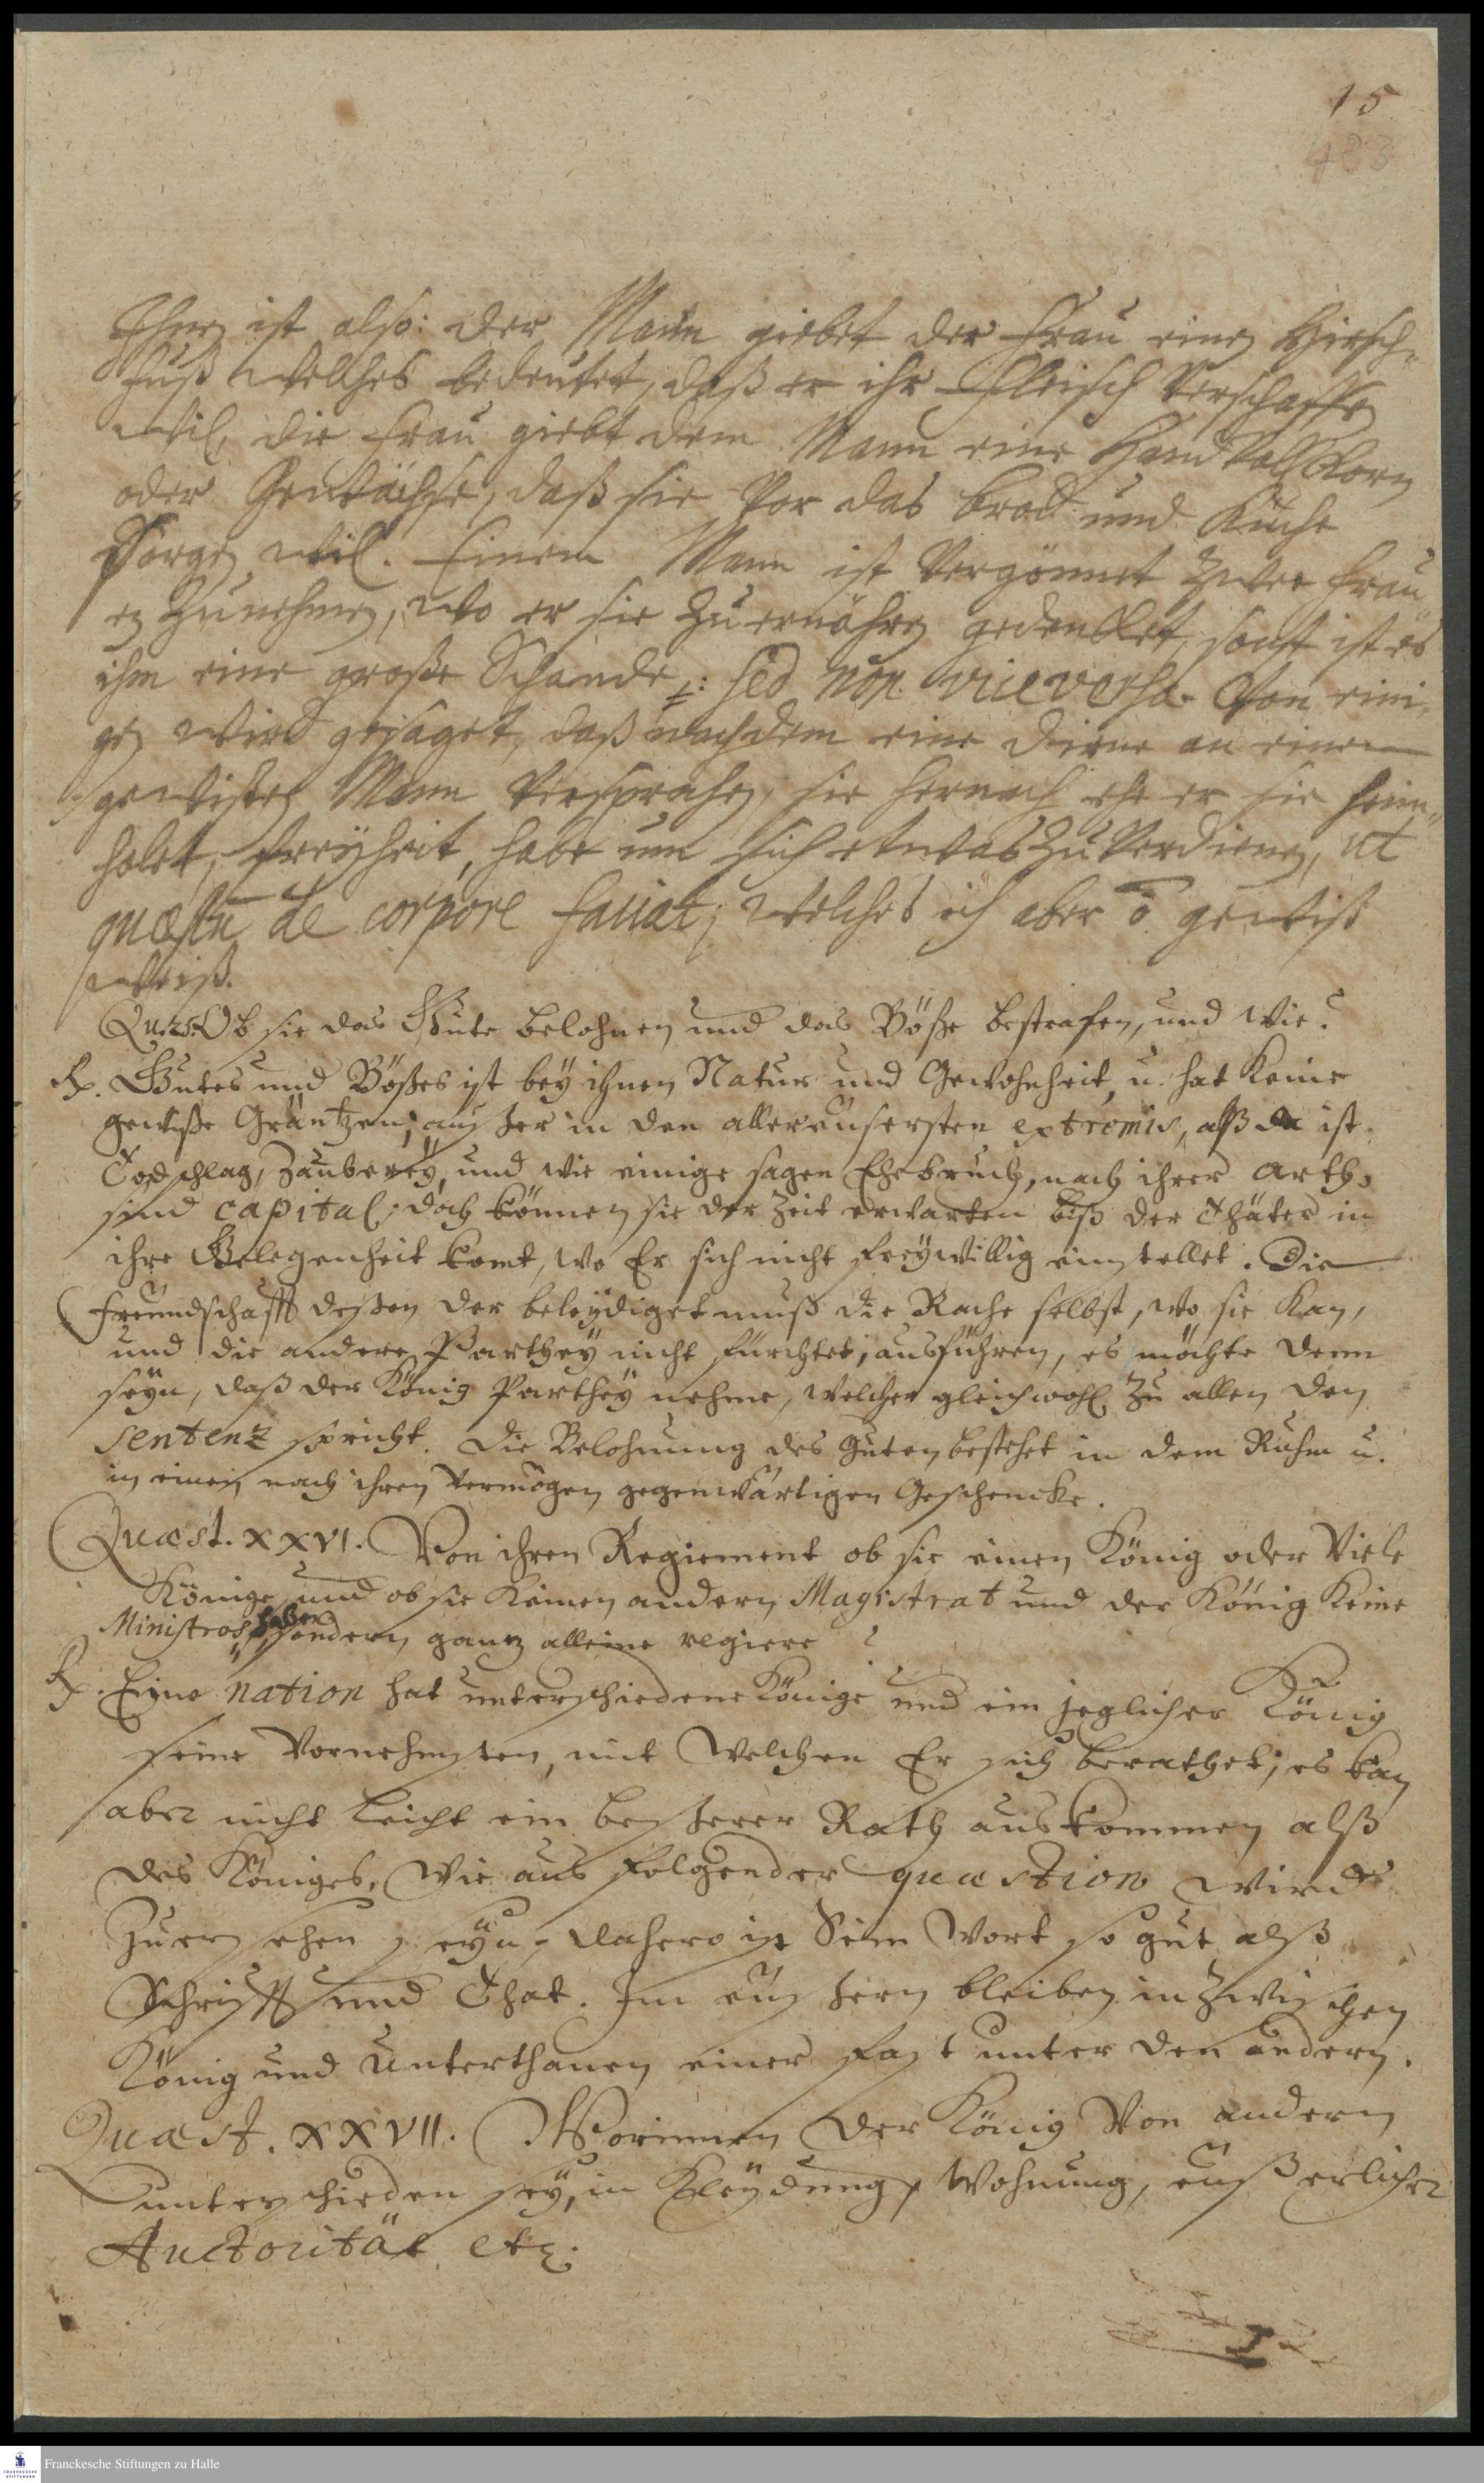 15
483
Ehen ist also: der Mann giebet der Frau einen Hirsch-
fuß welches bedeutet, daß er ihr Fleisch verschaffen
wil, die Frau giebt dem Mann eine Hand voll Korn
oder Gewächse, daß sie vor das brod und Küche
Sorgen wil. Einem Mann ist vergönnet zwee Frau
en zunehmen, wo er sie zuernähren gedencket, sonst ist es
ihm eine große Schande: sed non vice versa. Von eini-
gen wird gesaget, daß nachdem eine dirne an einen
gewißen Mann versprochen, sie hernach ehe er sie heim-
holet, freyheit habe um sich etwas zuverdienen, ut
quæstū de corpore faciat; welches ich aber ō gewiß
weiß.
Qu. 25. Ob sie das Gute belohnen und das Böße bestrafen, und wie?
Rx. Gutes und Böses ist bey ihnen Natur und Gewohnheit, u. hat keine
gewiße Gräntzen; ausser in den allereusersten extremis, alß da ist
Todschlag, Zauberey, und wie einige sagen Ehebruch, nach ihrer arth,
sind capital; doch können sie der Zeit erwarten biß der Thäter in
ihre Gelegenheit komt, wo Er sich nicht freywillig einstellet. Die
freundschafft deßen der beleydiget muß die Rache selbst, wo sie kan,
und die andere Parthey nicht fürchtet, ausführen, es möchte denn
seyn, daß der König Parthey nehme, welcher gleichwohl zu allen den
sentenz spricht. Die Belohnung des guten bestehet in dem Ruhm u.
in einen nach ihren vermögen gegenwärtigen Geschencke.
Quæst. XXVI. Von ihren Regiement ob sie einen König oder Viele
Könige und ob sie keinen andern Magistrat und der König keine
Ministros haben sondern gantz alleine regiere?
Rx. Eine nation hat unterschiedene Könige und ein jeglicher König
seine Vornehmsten, mit welchen Er sich berathet; es kan
aber nicht leicht ein besserer Rath auskommen alß
des Königes, wie aus folgender quæstion wird
zuersehen seyn, dahero ist Sein Wort so gut alß
Schrifft und That. Im eusern bleiben inzwischen
König und Unterthanen einer fast unter den andern.
Quæst. XXVII. Worinnen der König Von andern
unterschieden sey, in Kleydung, Wohnung, eußerlicher
Auctorität etc.
Franckesche Stiftungen zu Halle